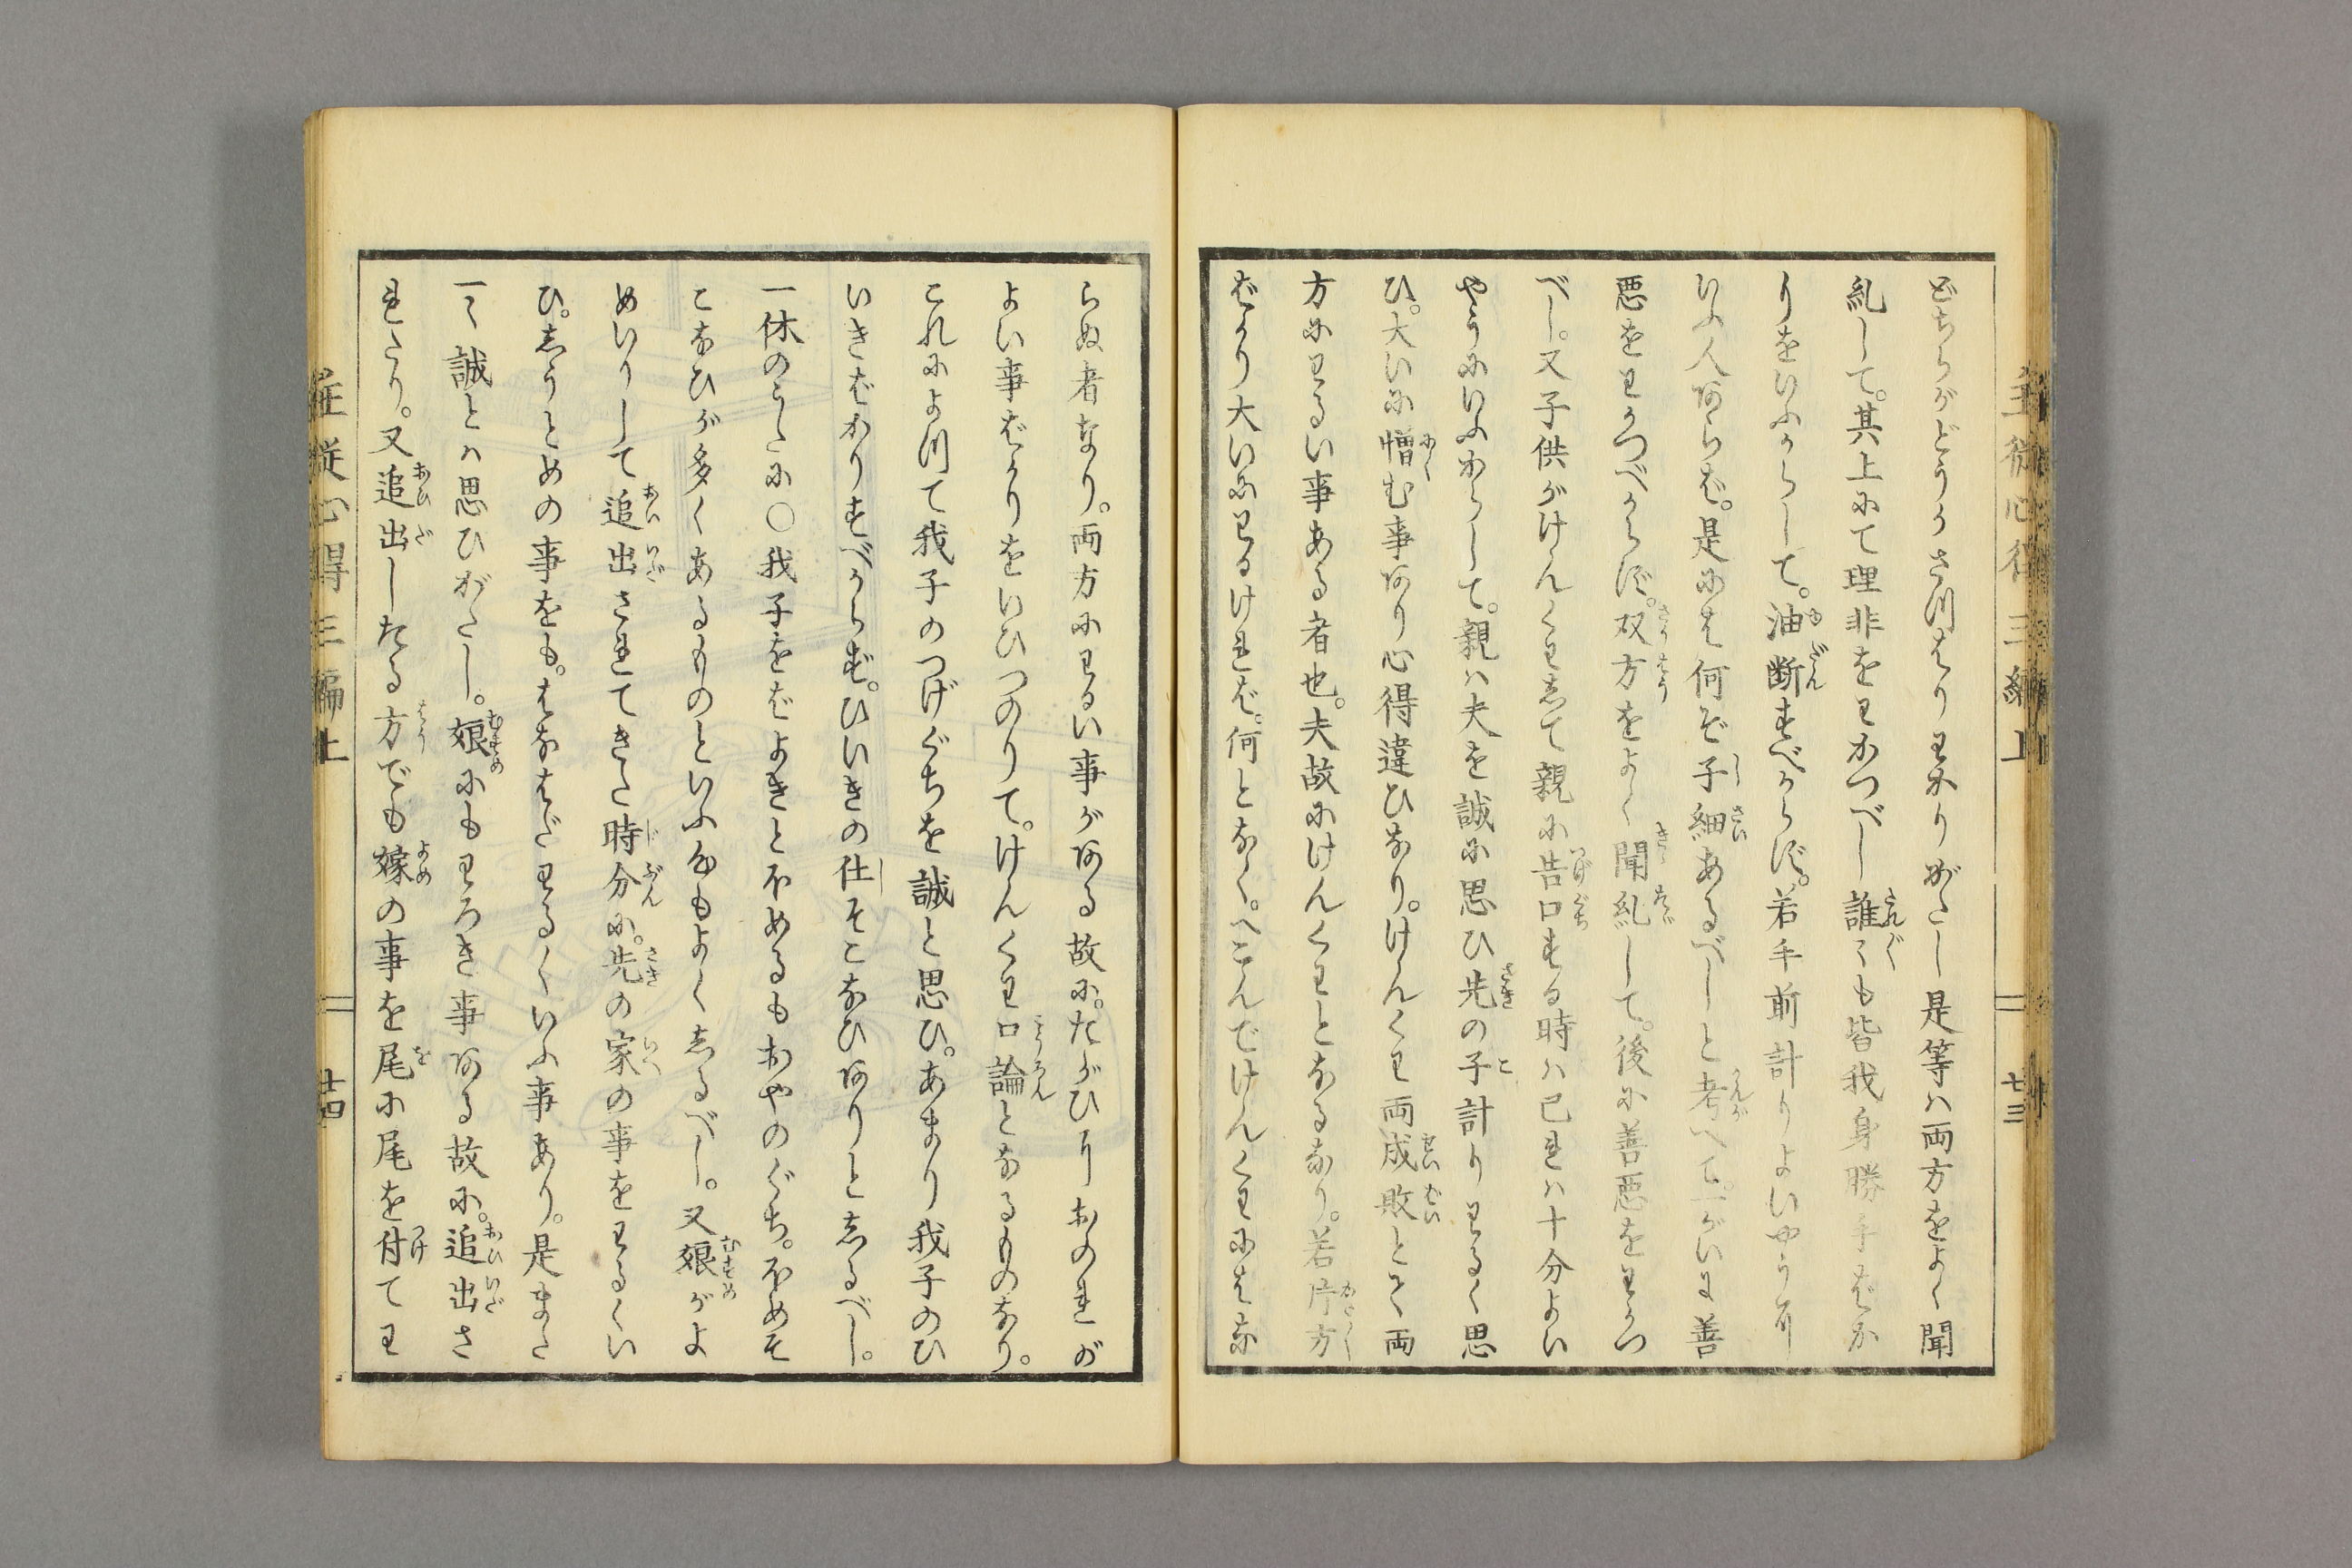 どちらがどうかさ川はりわかりがたし是等ハ両方をよく聞
糺して。其上にて理非をわかつべし誰〻も皆我身勝手ばか
りをいふからして。油断すべからず。若手前計りよいやうに
いふ人あらば。是には何ぞ子細あるべしと考へて。一がいに善
悪をわかつべからず。双方をよく聞糺して。後に善悪をわかつ
べし。又子供がけんくわして親に告口する時ハ己れハ十分よい
やうにいふからして。親ハ夫を誠に思ひ先の子計りわるく思
ひ。大いに憎む事あり心得違ひなり。けんくわ両成敗とて両
方にわるい事ある者也。夫故にけんくわとなるなり。若片方
ばかり大いにわるければ。何となく。へこんでけんくわにはな
らぬ者なり。両方にわるい事がある故に。たがひにおのれが
よい事ばかりをいひつのりて。けんくわ口論となるものなり。
これによ川て我子のつげぐちを誠と思ひ。あまり我子のひ
いきばかりすべからず。ひいきの仕そこなひありとしるべし。
一休のうたに〇我子をばよきとほめるもおやのぐち。ほめそ
こなひが多くあるものといふ歌もよくしるべし。又娘がよ
めいりして追出されてきた時分に。先の家の事をわるくい
ひ。しうとめの事をも。はなはだわるくいふ事あり。是また
一〻誠とハ思ひがたし。娘にもわろき事ある故に。追出さ
れたり。又追出したる方でも嫁の事を尾に尾を付てわ
主従心得三編上
七三
主従心得三編上
七四